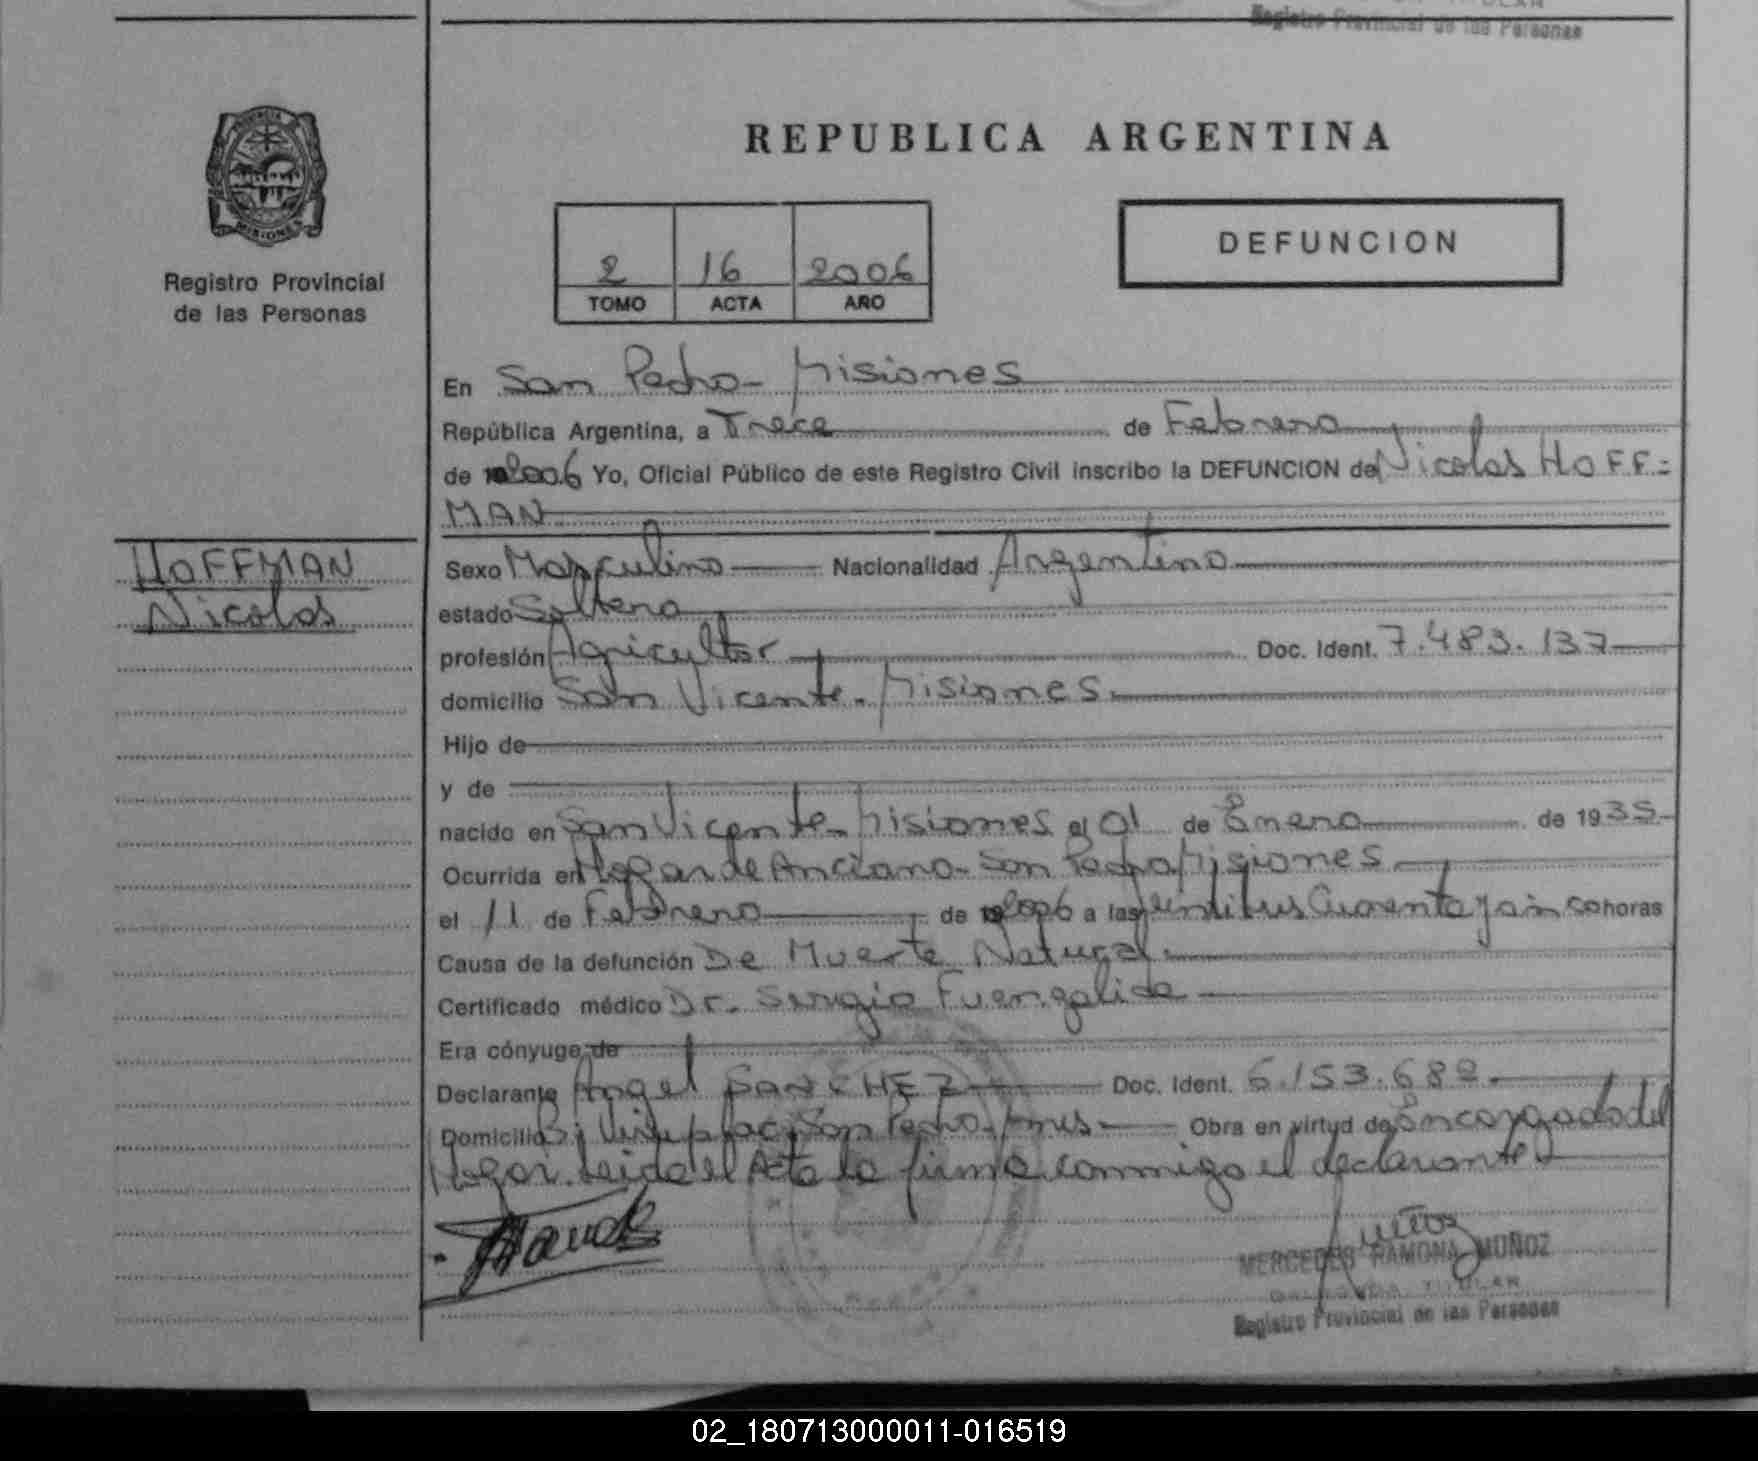 Registro Provincial de las Personas
PROVINCIA
MISIONES
Registro Provincial
de las Personas
REPUBLICA ARGENTINA
2 16 2006
TOMO ACTA AÑO
DEFUNCION
En San Pedro - Misiones
República Argentina, a Trece de Febrero
de 2006 Yo, Oficial Público de este Registro Civil inscribo la DEFUNCION de Nicolas HOFF=
MAN
HOFFMAN
Nicolas
Sexo Masculino Nacionalidad Argentino
estado Soltero
profesión Agricultor Doc. Ident. 7.483.137
domicilio San Vicente - Misiones
Hijo de
y de
nacido en San Vicente - Misiones el 01 de Enero de 1935
Ocurrida en Hogar de Anciano - San Pedro Misiones
el 11 de Febrero de 2006 a las Cuarenta y cinco horas
Causa de la defunción De Muerte Natural
Certificado médico Dr. Sergio
Era cónyuge de
Declarante Angel SANCHEZ Doc. Ident. 6.153.682
Domicilio B: San Pedro - Mnes Obra en virtud de Encargado del
Hogar. Leida el Acta la firma conmigo el declarante
MERCEDES RAMONA MUÑOZ
TITULAR
Registro Provincial de las Personas
02_180713000011-016519